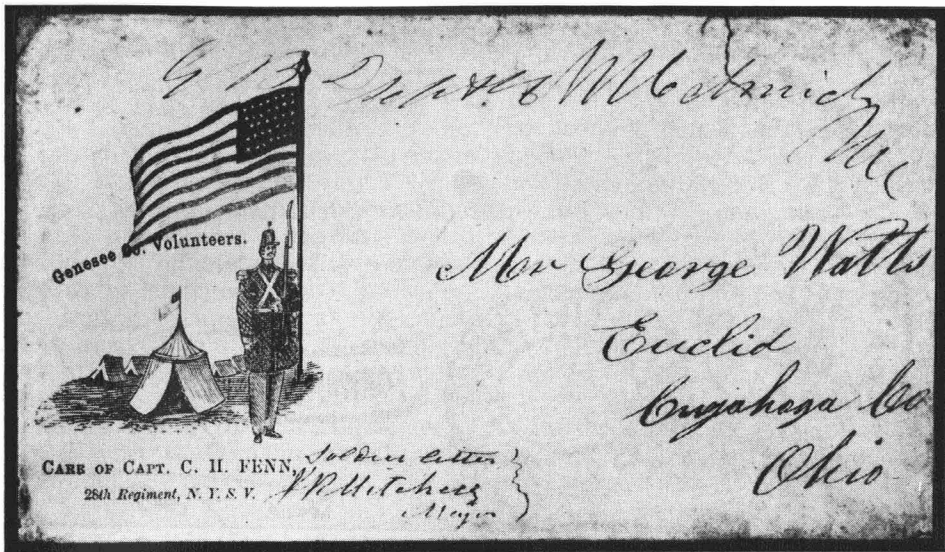 Mc
Genesee Co. Volunteers.
Mr George Watts
Euclid
Cuyahoga Co
Ohio
CARE OF CAPT. C. H. FENN,
28th Regiment, N. Y. S. V.
Soldier letter
Mitchell
Major